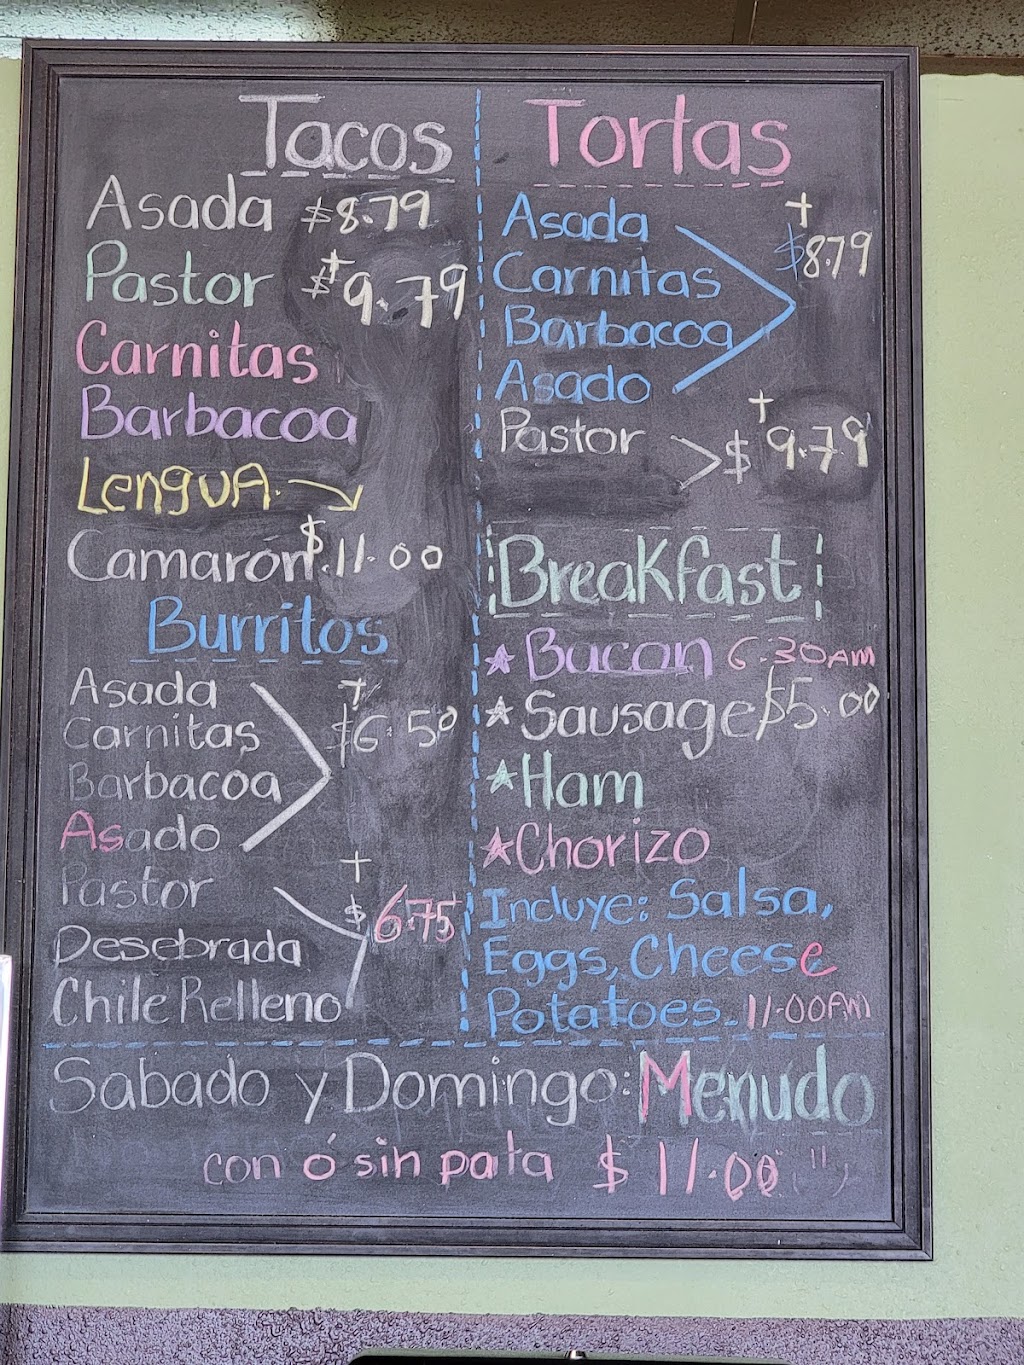 Tacos
Asada $8.79
Pastor $+9.79
Carnitas
Barbacoa
LenguA.
Camarón $.11.00
Burritos
Asada +
Carnitas $6.50
Barbacoa
Asado
Pastor +
$6.75
Desebrada
Chile Relleno
Tortas
Asada +
$8.79
Carnitas
Barbacoa
Asado
Pastor $+9.79
Breakfast
Bacon 6:30AM
Sausage $5.00
Ham
Chorizo
Incluye: Salsa,
Eggs, Cheese
Potatoes. 11:00AM
Sabado y Domingo: Menudo
con ó sin pata $11.00